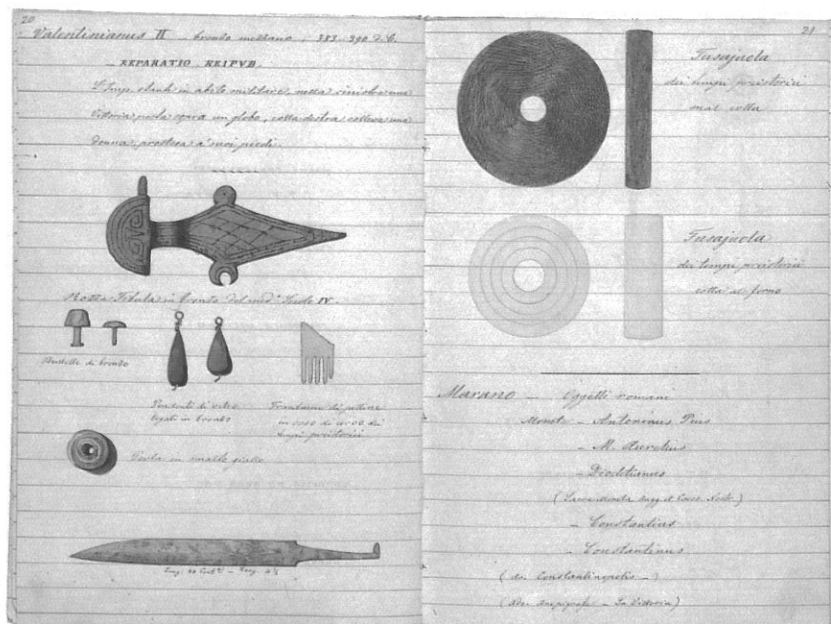 20
Valentinianus II — bronzo mezzano, 383-390 d. C.
— REPARATIO REIPVB
L'Imp. stante in abito militare, nella sinistra una
Vittoria posta sopra un globo, colla destra solleva una
donna, prostesa a' suoi piedi.
Rozza Fibula in bronzo del med.º Secolo IV.
di bronzo
Pendenti di vetro
legati in bronzo
Frammento di pettine
in osso di
tempi preistorici
Perla in smalto giallo
Lung.
21
Fusajuola
dei tempi preistorici
mal cotta
Fusajuola
dei tempi preistorici
cotta al forno
Marano — Oggetti romani
Monete — Antoninus Pius
— M. Aurelius
— Diocletianus
(Sacra Moneta Augg et Caess. Nostr.)
— Constantius
— Constantinus
Constantinopolis —)